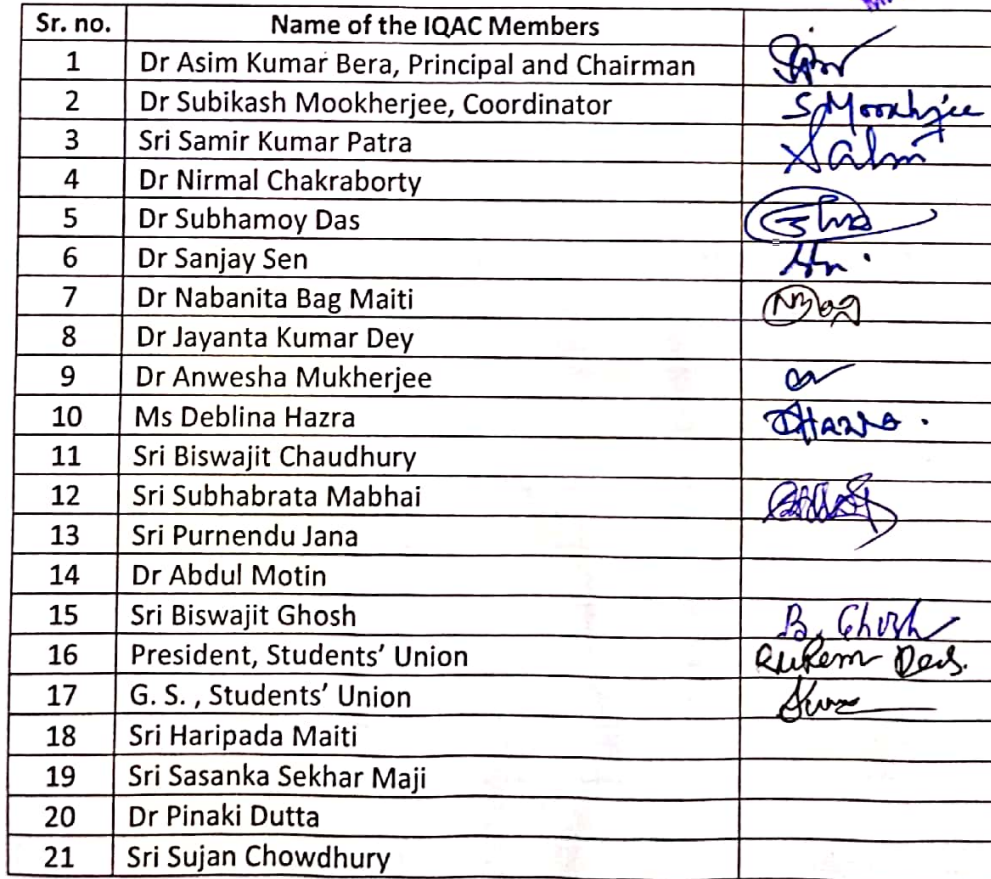 Sr. no. Name of the IQAC Members
1 Dr Asim Kumar Bera, Principal and Chairman
2 Dr Subikash Mookherjee, Coordinator S Mookherjee
3 Sri Samir Kumar Patra
4 Dr Nirmal Chakraborty
5 Dr Subhamoy Das
6 Dr Sanjay Sen
7 Dr Nabanita Bag Maiti
8 Dr Jayanta Kumar Dey
9 Dr Anwesha Mukherjee
10 Ms Deblina Hazra DHazra.
11 Sri Biswajit Chaudhury
12 Sri Subhabrata Mabhai
13 Sri Purnendu Jana
14 Dr Abdul Motin
15 Sri Biswajit Ghosh B. Ghosh
16 President, Students’ Union
17 G. S. , Students’ Union
18 Sri Haripada Maiti
19 Sri Sasanka Sekhar Maji
20 Dr Pinaki Dutta
21 Sri Sujan Chowdhury